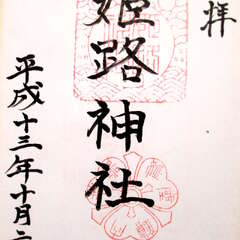 拝
姫路神社
平成十三年十月二